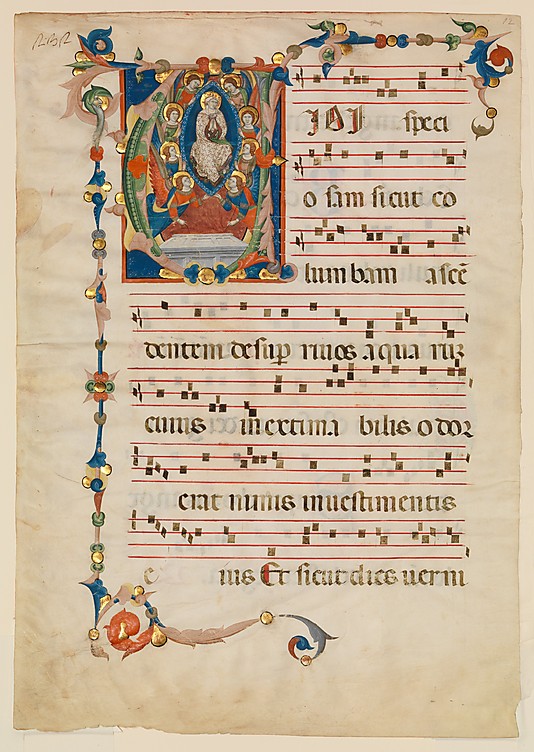 IDI speci
o sam sicut co
lumbam ascē
dentem desup riuos aqua rūz
cuius inextima bilis odor
erat nimis inuestimentis
e ius Et sicut dies uerni